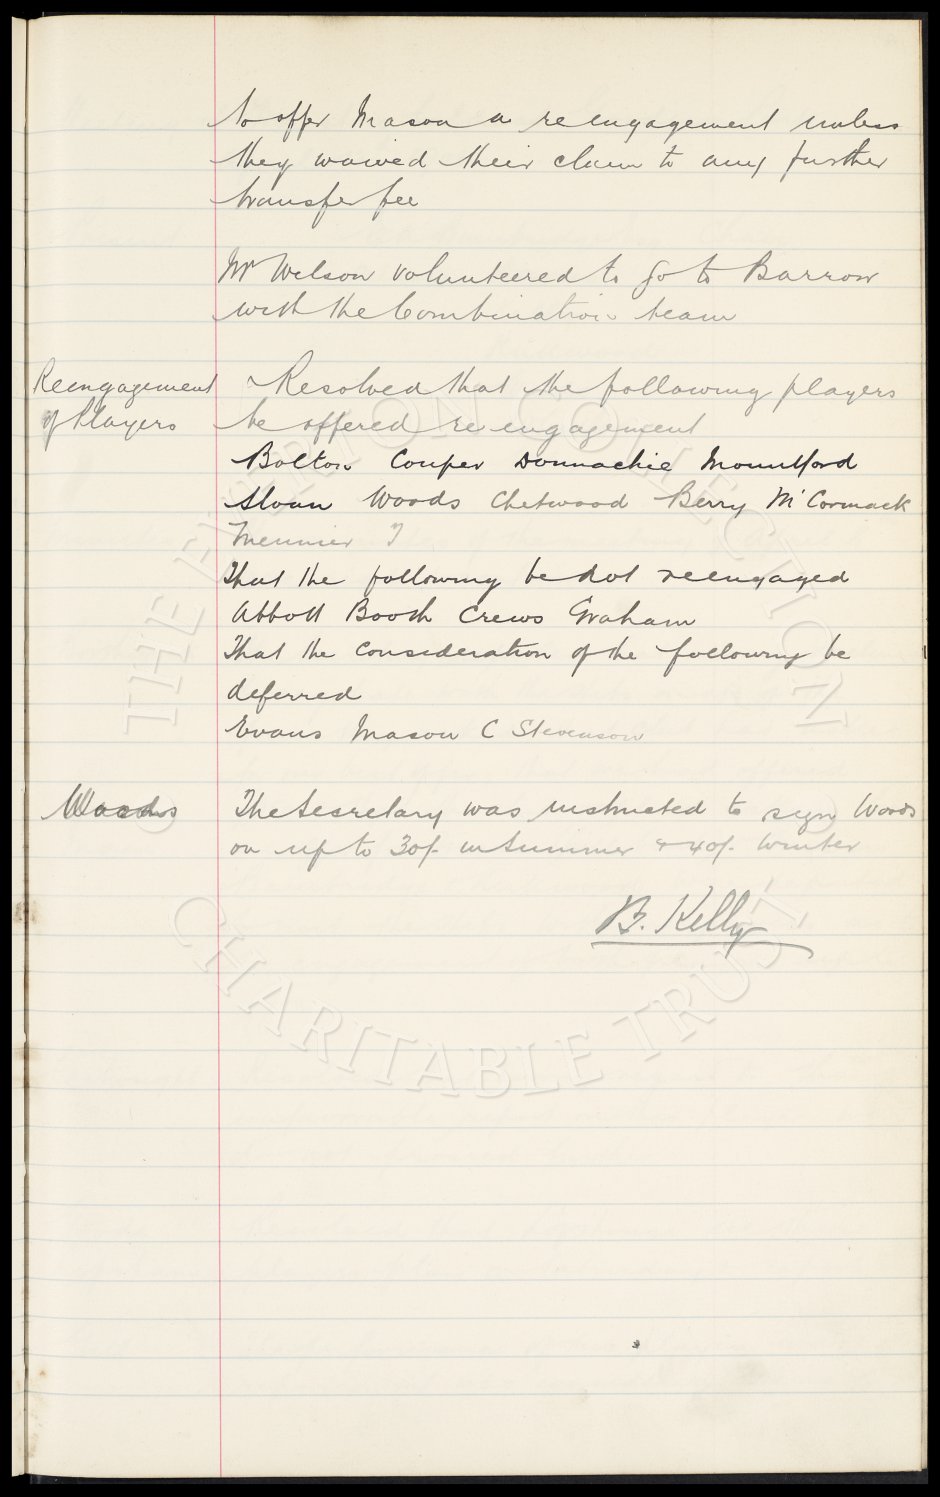 to offer Mason a reengagement unless
they waived their claim to any further
transfer fee
Mr Wilson volunteered to go to Barrow
with the Combination team
Reengagement
of Players
Resolved that the following players
be offered reengagement
Bolton Couper Donnachie Mountford
Sloan Woods Chetwood Berry McCormack
Meunier
That the following be not reengaged
Abbott Booth Crews Graham
That the consideration of the following be
deferred
Evans Mason C Stevenson
Woods
The Secretary was instructed to sign Woods
on up to 30/- in Summer & 40/- Winter
B. Kelly
THE EVERTON COLLECTION
CHARITABLE TRUST